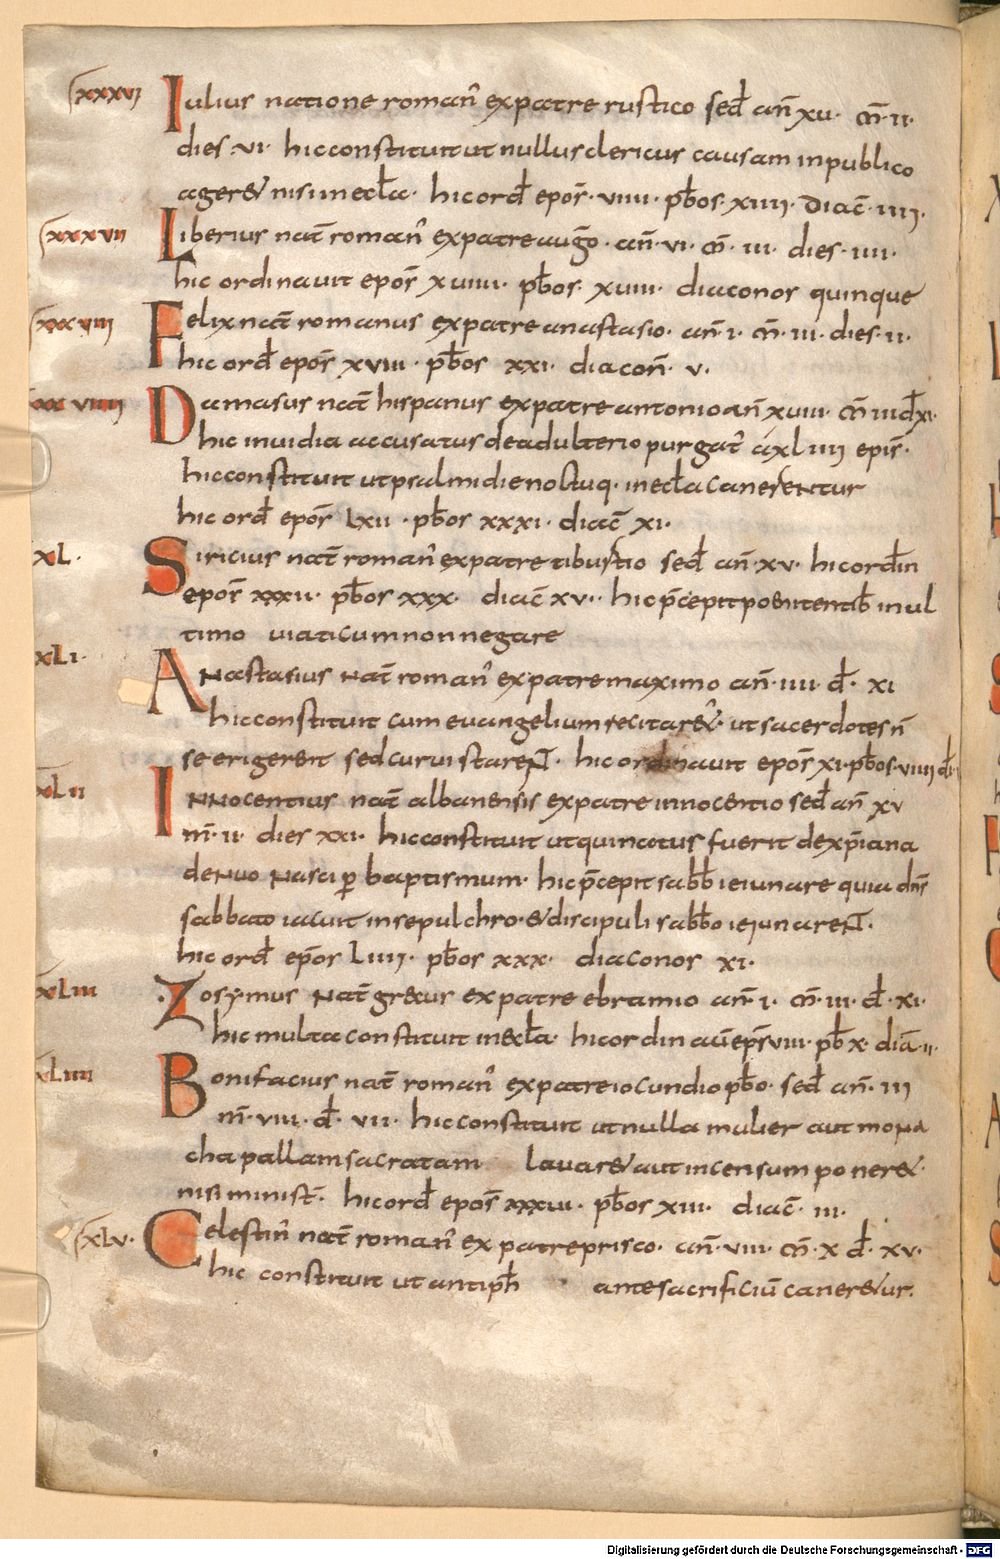 xxxvi Iulius natione roman᾽ expatre rustico sed̄ an̄ xv· m̄· ii·
dies· vi· hic constituit ut nullus clericus causam in publico
ager& nisi in eccl̄a· hic ord̄ epos̄· viiii· pb̄os· xiiii· diac̄· iiii·
xxxvii Liberius nat̄ roman᾽ expatre aug̅o· an̄· vi· m̄· iii· dies· iiii·
hic ordinavit epos̄ xviiii· pb̄os· xviii· diaconos quinque
xxxviii Felix nat̄ romanus expatre anastasio· an̄· i· m̄· iii· dies· ii·
hic ord̄ epos̄ xviii· pb̄os xxi· diacon̄· v·
xxxviiii Damasus nat̄ hispanus expatre antonio an̄ xviii· m̄ iii d̄ xi·
hic invidia accusatus de adulterio purgat᾽ a xliiii epis̄·
hic constituit ut psalmi die noctuq· in eccl̄a canerentur
hic ord̄ epos̄ lxii· pb̄os xxxi· diac̄ xi·
xl· Siricius nat̄ roman᾽ expatre tiburtio sed̄ an̄· xv· hic ord̄in
epos̄ xxxii· pb̄os xxx· diac̄ xv·· hic p̄cepit poenitentib̄ in ul
timo viaticum non negare
xli· Anastasius nat̄ roman᾽ expatre maximo an̄· iiii· d̄· xi
hic constituit cum evangelium recitar&᾽· ut sacerdotes n̄
se erigerent sed curvi starent· hic ordinavit epos̄ xi· pb̄os· viiii d̄·
xlii Innocentius nat̄ albanensis expatre innocentio sed̄ an̄ xv
m̄· ii· dies xxi· hic constituit ut qui notus fuerit de xp̄iana
denuo nasci ꝑ baptismum· hic p̄cepit sabb̄ ieiunare quia dn̄s
sabbato iacuit in sepulchro· & discipuli sabb̄o ieiunarent·
hic ord̄ epos̄ liiii· pb̄os xxx· diaconos xi·
xliii Zosymus nat̄ grecus expatre ebramio an̄· i· m̄· iii· d̄· xi·
hic multa constituit in eccl̄a· hic ordinav̄ ep̄s viii· pb̄ x· diā· ii·
xliiii Bonifacius nat̄ roman᾽ expatre iocundio pb̄o· sed̄ an̄· iii
m̄· viii· d̄· vii· hic constituit ut nulla mulier aut mona
cha pallam sacratam lavar& aut incensum poner&·
nisi minist̄· hic ord̄ epos̄ xxxvi· pb̄os xiii· diac̄· iii·
xlv· Celestin᾽ nat̄ roman᾽ ex patre prisco· an̄· viii· m̄· x d̄· xv·
hic constituit ut antiph̄ ante sacrificiū caner&ur·
Digitalisierung gefördert durch die Deutsche Forschungsgemeinschaft - DFG